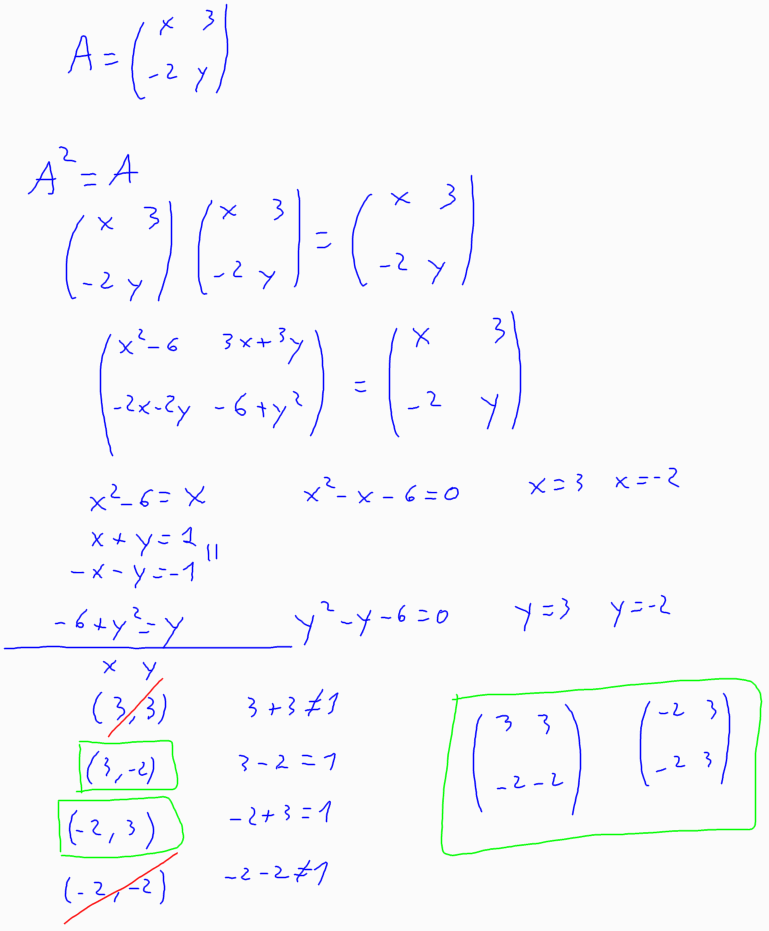 A = ( x 3
-2 y )
A² = A
( x 3
-2 y ) ( x 3
-2 y ) = ( x 3
-2 y )
( x²-6 3x+3y
-2x-2y -6+y² ) = ( x 3
-2 y )
x²-6=x x²-x-6=0 x=3 x=-2
x+y=1
-x-y=-1 "
-6+y²=y y²-y-6=0 y=3 y=-2
x y
(3,3) 3+3≠1
(3,-2) 3-2=1
(-2,3) -2+3=1
(-2,-2) -2-2≠1
( 3 3
-2 -2 )
( -2 3
-2 3 )